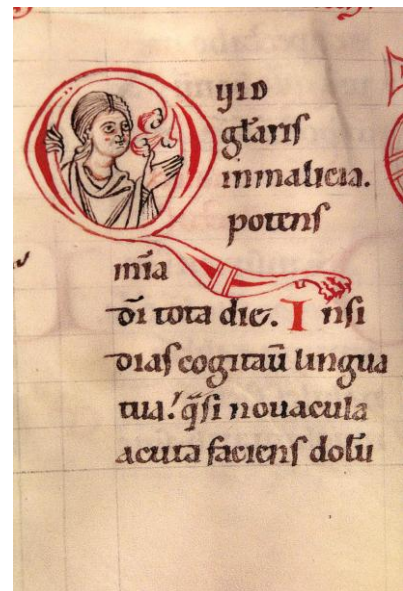 QUID
gl̄aris
in malicia.
potens
mīa
dī tota die. Insi
dias cogitaū lingua
tua: q̄si nouacula
acuta faciens dolū